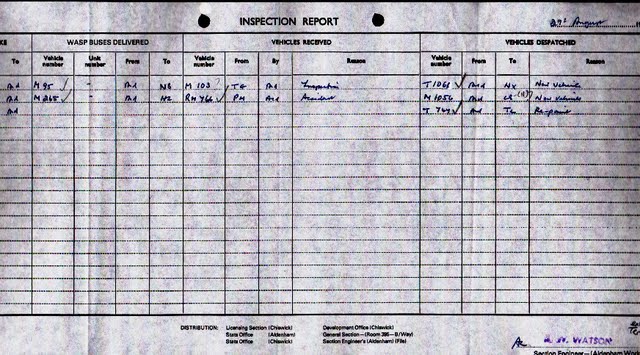 INSPECTION REPORT
29th August
KE WASP BUSES DELIVERED VEHICLES RECEIVED VEHICLES DESPATCHED
To Vehicle number Unit number From To Vehicle number From By Reason Vehicle number From To Reason
Ad M 95 - Ad NB M 103 TH Ad Inspection T 1065 Ad NX New vehicle
Ad M 265 Ad H2 RM 766 PM Ad Accident M 1056 Ad New vehicle
Ad T 749 Ad TL Repaint
DISTRIBUTION: Licensing Section (Chiswick) Development Office (Chiswick)
State Office (Aldenham) General Section—(Room 395—B/Way)
State Office (Chiswick) Section Engineer's (Aldenham) (File)
WATSON
Section Engineer—(Aldenham